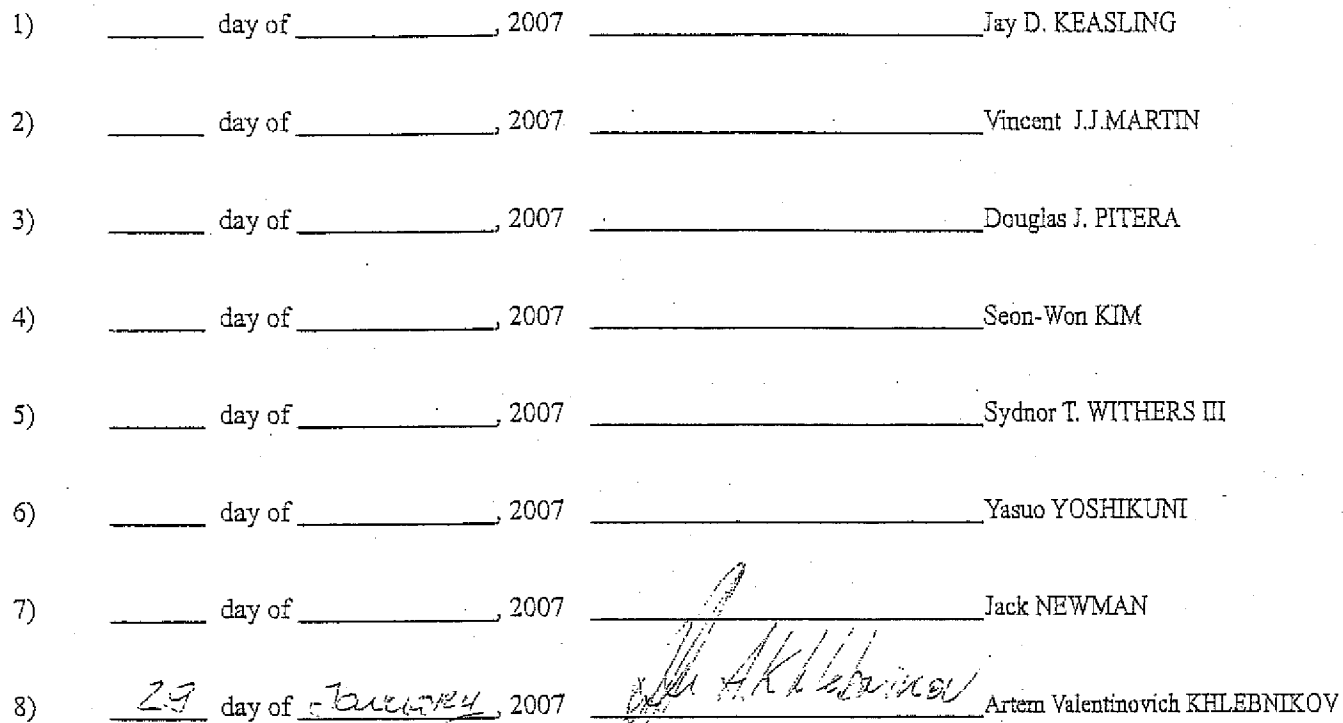 1) ______ day of ____________, 2007 ________________________ Jay D. KEASLING
2) ______ day of ____________, 2007 ________________________ Vincent J.J.MARTIN
3) ______ day of ____________, 2007 ________________________ Douglas J. PITERA
4) ______ day of ____________, 2007 ________________________ Seon-Won KIM
5) ______ day of ____________, 2007 ________________________ Sydnor T. WITHERS III
6) ______ day of ____________, 2007 ________________________ Yasuo YOSHIKUNI
7) ______ day of ____________, 2007 ________________________ Jack NEWMAN
8) 29 day of January, 2007 A Khlebnikov Artem Valentinovich KHLEBNIKOV